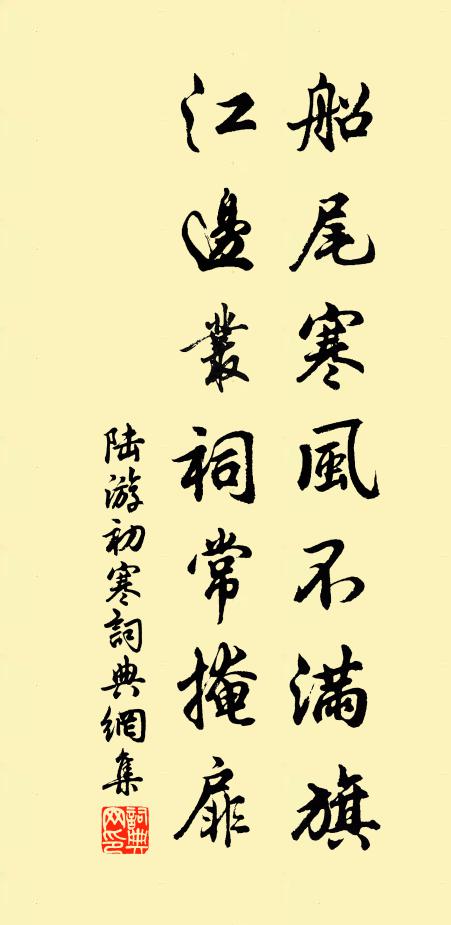 船尾寒風不滿旗
江邊叢祠常掩扉
陆游初寒詞典網集
詞典網印